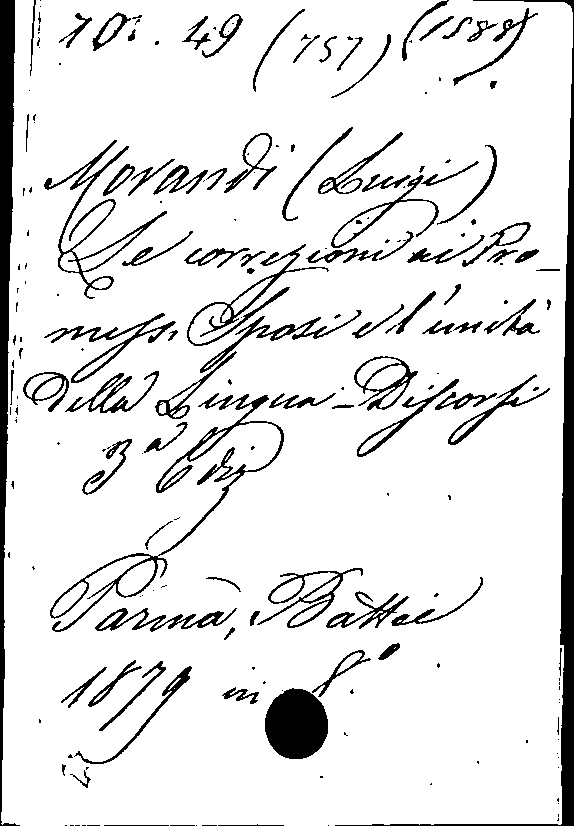 101. 49 (757) (1588)
Morandi (Luigi)
Le correzioni ai Pro-
messi Sposi e l'unità
della Lingua - Discorsi
3ª Ediz
Parma, Battei
1879 in 8.º